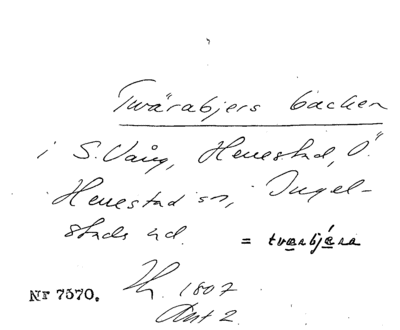 Twärabjers backen
i S. Vång, Herrestad, Ö.
Herrestad sn, Ingel-
stads hd.
= tvarbjera
Nr 7570.
1807
Akt 2